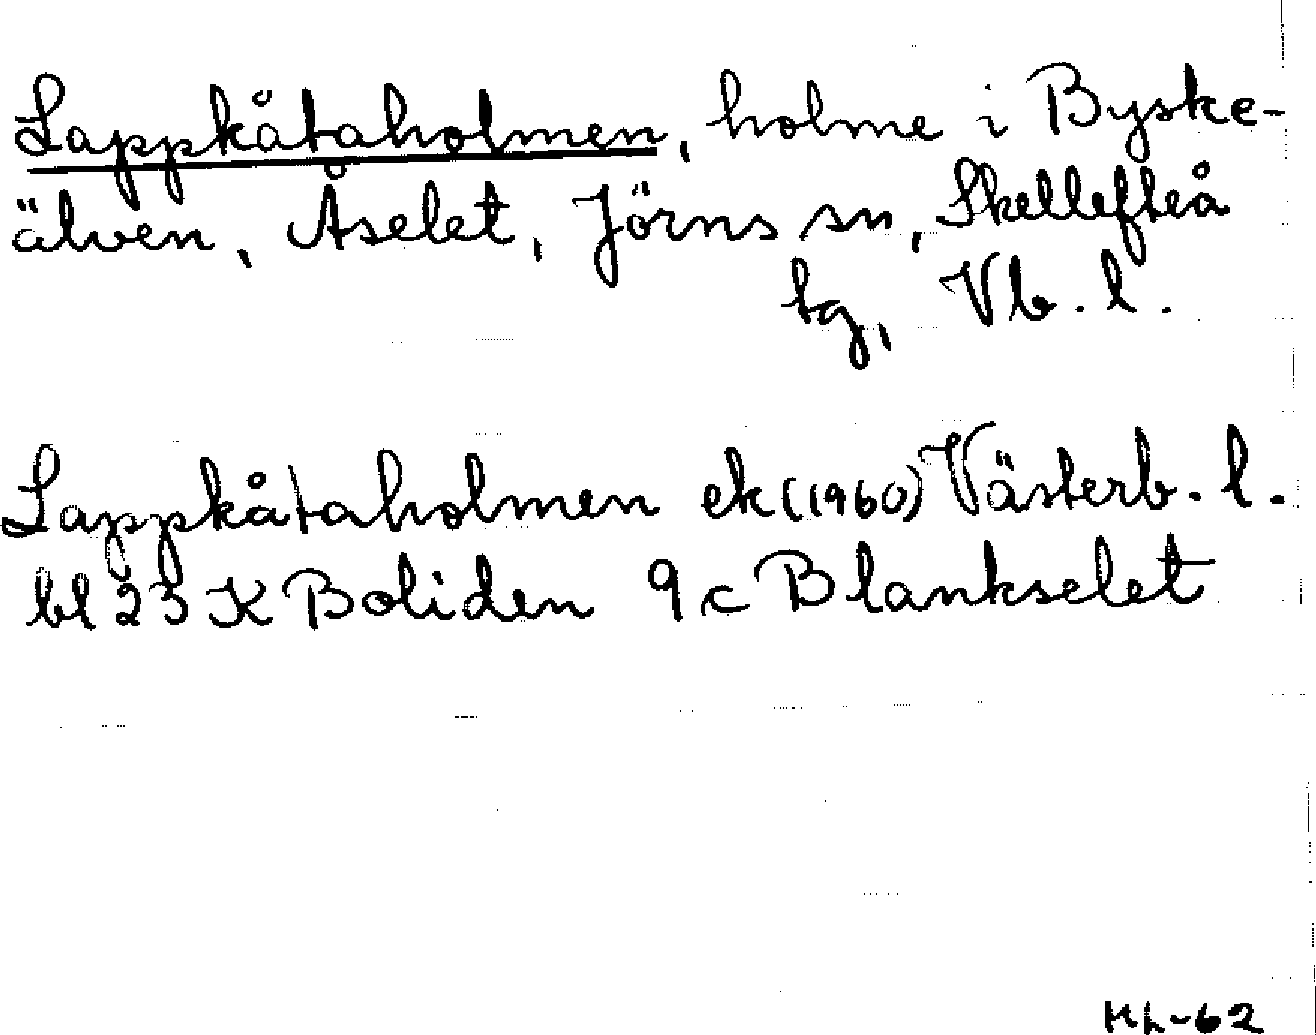 Lappkåtaholmen, holme i Byske-
älven, Åselet, Jörns sn, Skellefteå
tg, Vb. l.
Lappkåtaholmen ek (1960) Västerb. l.
bl 23 K Boliden 9 c Blankselet